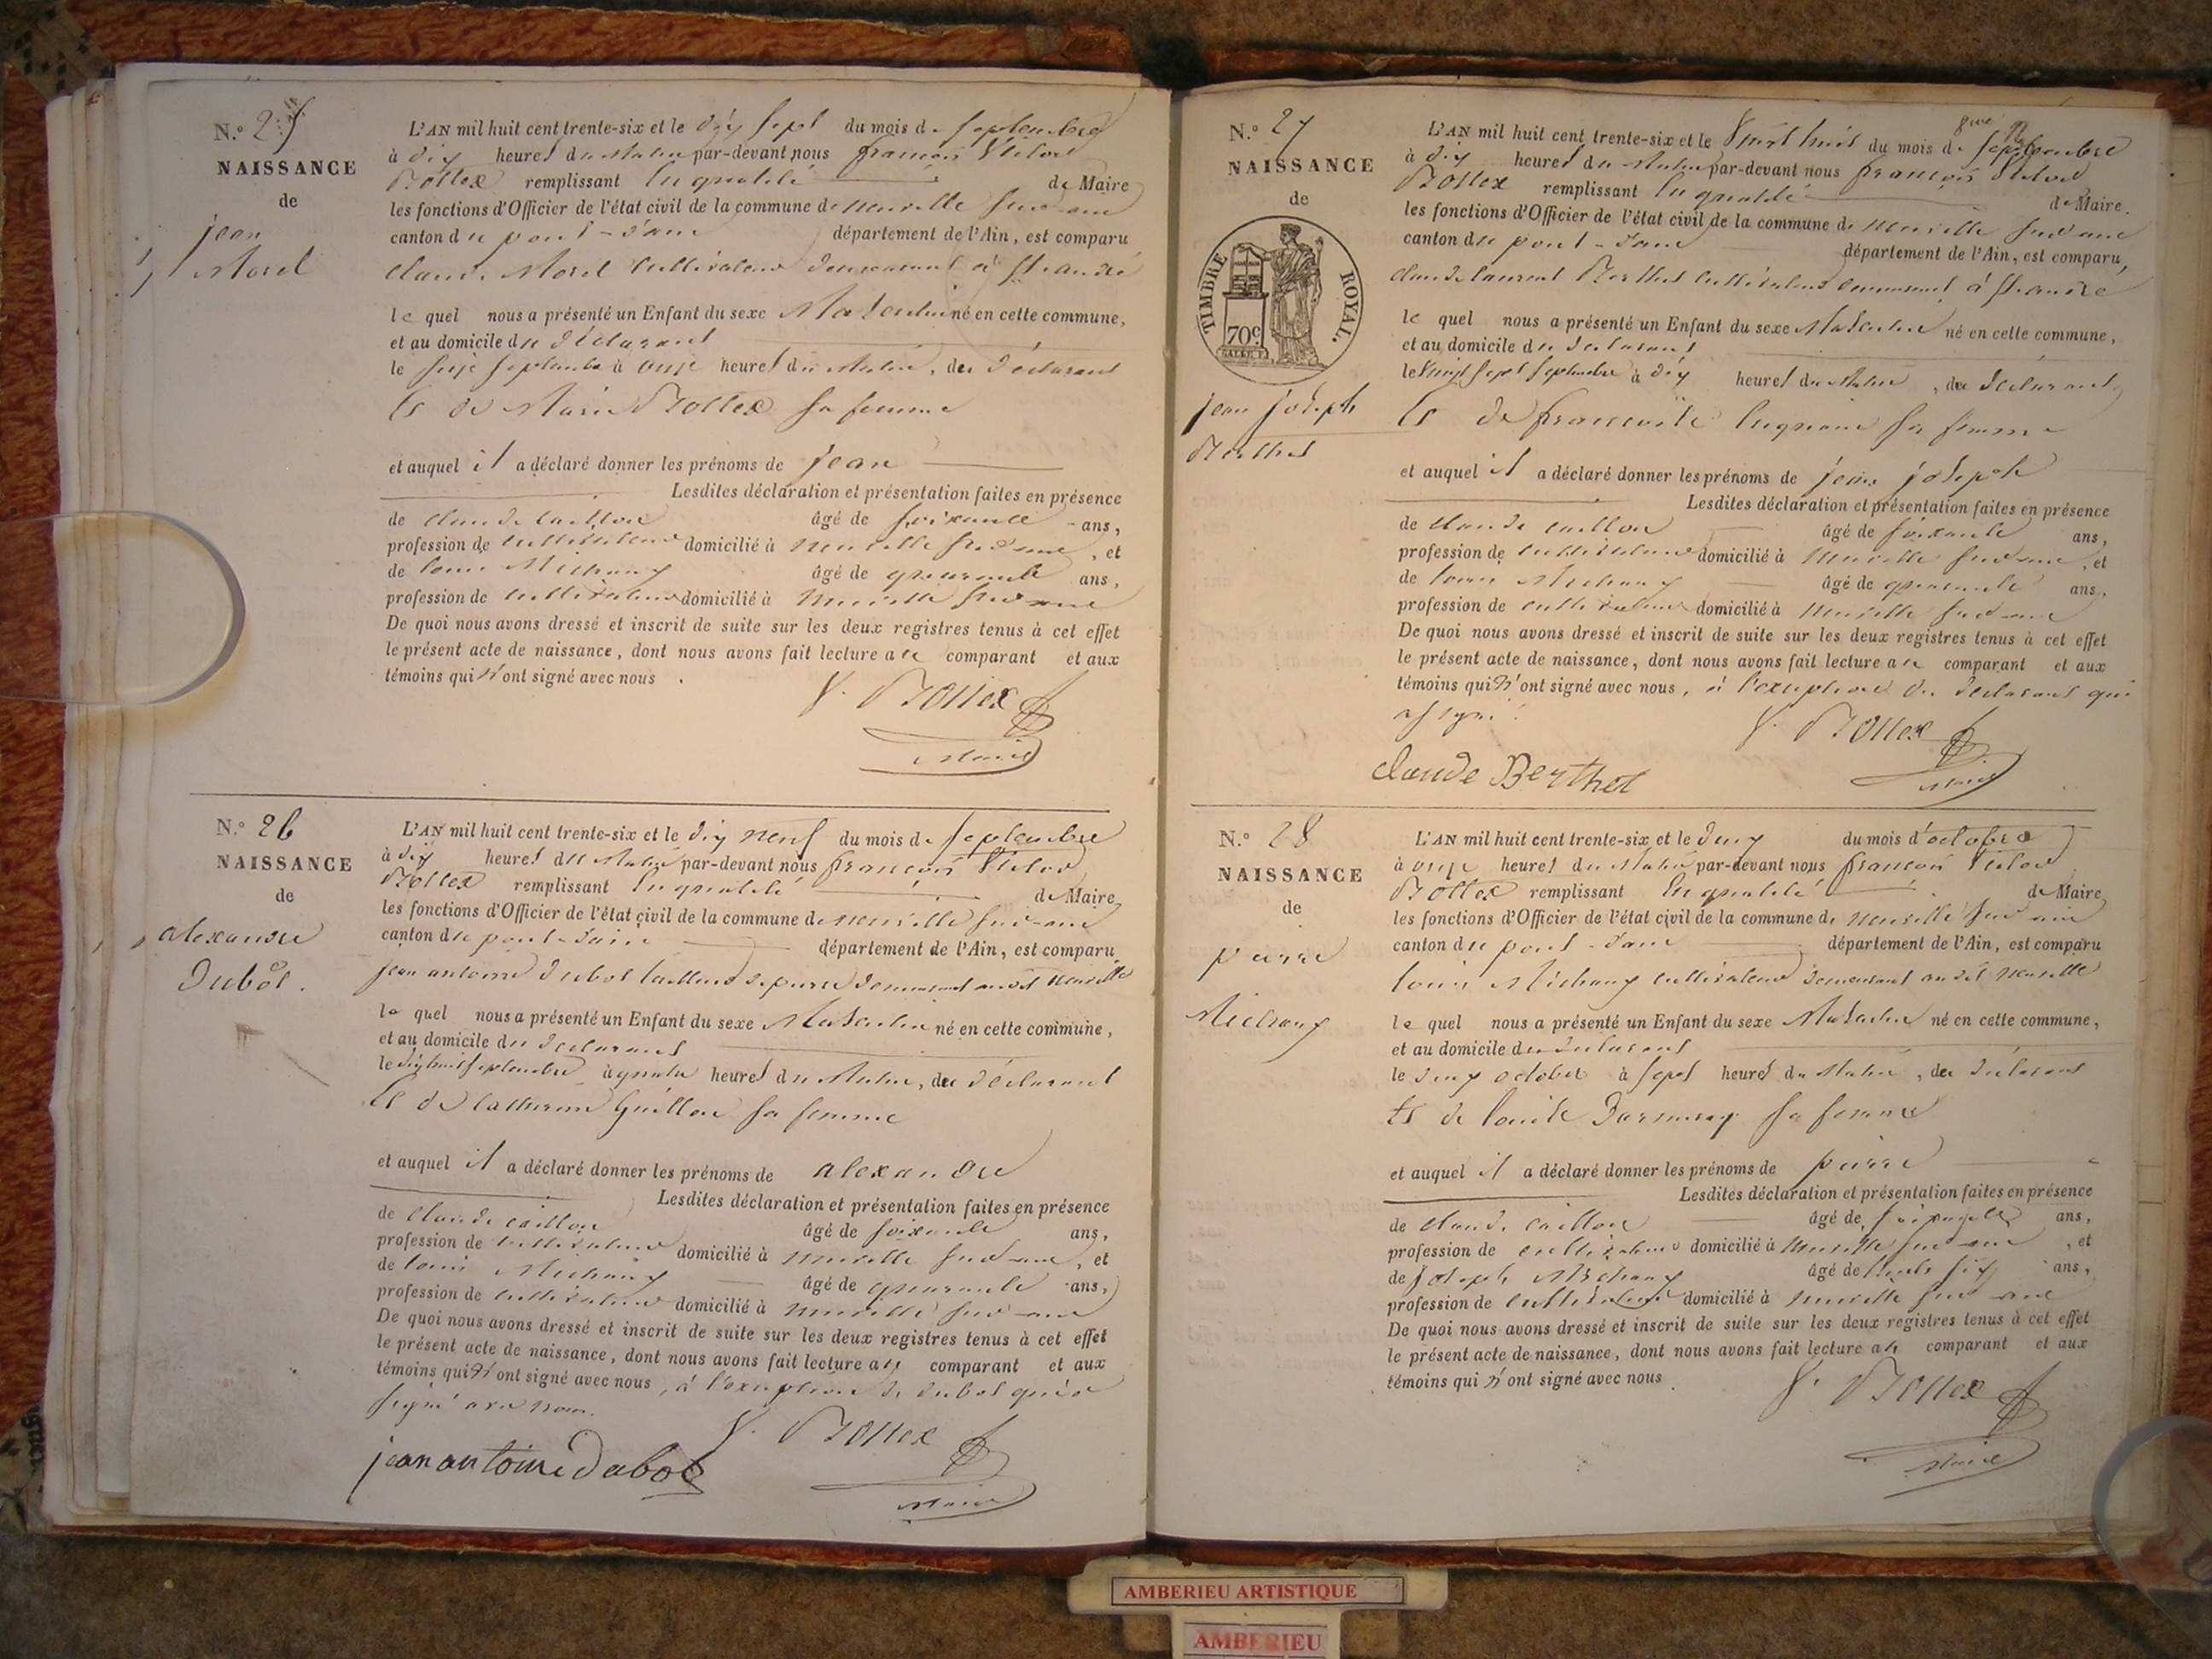 N.º 25
NAISSANCE
de
jean
Morel
L'AN mil huit cent trente-six et le dix sept du mois de septembre
à dix heures du Matin par-devant nous françois Victor
Bollex remplissant en qualité de Maire
les fonctions d'Officier de l'état civil de la commune de neuville sur ain
canton du pont-d'ain département de l'Ain, est comparu
claude Morel cultivateur demeurant à st. andré
le quel nous a présenté un Enfant du sexe Masculin né en cette commune,
et au domicile du déclarant
le seize septembre à onze heures du Matin, du déclarant
et de Marie Bollex sa femme
et auquel il a déclaré donner les prénoms de jean
Lesdites déclaration et présentation faites en présence
de claude caillon âgé de soixante ans,
profession de cultivateur domicilié à neuville sur ain, et
de louis Michaux âgé de quarante ans,
profession de cultivateur domicilié à neuville sur ain
De quoi nous avons dressé et inscrit de suite sur les deux registres tenus à cet effet
le présent acte de naissance, dont nous avons fait lecture au comparant et aux
témoins qui n'ont signé avec nous.
V. Bollex
Maire
N.º 26
NAISSANCE
de
alexandre
Dubot.
L'AN mil huit cent trente-six et le dix neuf du mois de septembre
à dix heures du Matin par-devant nous françois Victor
Bollex remplissant en qualité de Maire
les fonctions d'Officier de l'état civil de la commune de neuville sur-ain
canton du pont-d'ain département de l'Ain, est comparu
jean antoine dubot tailleur de pierre demeurant audit neuville
le quel nous a présenté un Enfant du sexe Masculin né en cette commune,
et au domicile du déclarant
le dix huit septembre à quatre heures du Matin, du déclarant
et de catherine Guillon sa femme
et auquel il a déclaré donner les prénoms de alexandre
Lesdites déclaration et présentation faites en présence
de claude caillon âgé de soixante ans,
profession de cultivateur domicilié à neuville sur ain, et
de louis Michaux âgé de quarante ans,
profession de cultivateur domicilié à neuville sur ain
De quoi nous avons dressé et inscrit de suite sur les deux registres tenus à cet effet
le présent acte de naissance, dont nous avons fait lecture au comparant et aux
témoins qui n'ont signé avec nous, à l'exception de dubot qui a
signé avec nous.
V. Bollex
jean antoine Dubot
Maire
N.º 27
NAISSANCE
de
TIMBRE ROYAL.
70c
jean joseph
Berthet
L'AN mil huit cent trente-six et le Vingt huit du mois de septembre
à dix heures du Matin par-devant nous françois Victor
Bollex remplissant en qualité de Maire.
les fonctions d'Officier de l'état civil de la commune de neuville sur ain
canton du pont-d'ain département de l'Ain, est comparu,
claude laurent Berthet cultivateur demeurant à st. andré
le quel nous a présenté un Enfant du sexe Masculin né en cette commune,
et au domicile du déclarant
le Vingt sept septembre à dix heures du Matin, du déclarant
et de françoise sa femme
et auquel il a déclaré donner les prénoms de jean joseph
Lesdites déclaration et présentation faites en présence
de claude caillon âgé de soixante ans,
profession de cultivateur domicilié à neuville sur ain, et
de louis Michaux âgé de quarante ans,
profession de cultivateur domicilié à neuville sur ain
De quoi nous avons dressé et inscrit de suite sur les deux registres tenus à cet effet
le présent acte de naissance, dont nous avons fait lecture au comparant et aux
témoins qui n'ont signé avec nous, à l'exception du déclarant qui
a signé.
V. Bollex
claude Berthet
Maire
N.º 28
NAISSANCE
de
pierre
Michaux
L'AN mil huit cent trente-six et le deux du mois d'octobre
à onze heures du Matin par-devant nous françois Victor
Bollex remplissant en qualité de Maire
les fonctions d'Officier de l'état civil de la commune de neuville sur ain
canton du pont-d'ain département de l'Ain, est comparu
louis Michaux cultivateur demeurant audit neuville
le quel nous a présenté un Enfant du sexe Masculin né en cette commune,
et au domicile du déclarant
le deux octobre à sept heures du Matin, du déclarant
et de louise sa femme
et auquel il a déclaré donner les prénoms de pierre
Lesdites déclaration et présentation faites en présence
de claude caillon âgé de soixante ans,
profession de cultivateur domicilié à neuville sur ain, et
de joseph Michaux âgé de trente six ans,
profession de cultivateur domicilié à neuville sur ain
De quoi nous avons dressé et inscrit de suite sur les deux registres tenus à cet effet
le présent acte de naissance, dont nous avons fait lecture au comparant et aux
témoins qui n'ont signé avec nous.
V. Bollex
Maire
AMBERIEU ARTISTIQUE
AMBERIEU